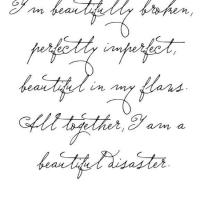 I'm beautifully broken,
perfectly imperfect,
beautiful in my flaws.
All together, I am a
beautiful disaster.